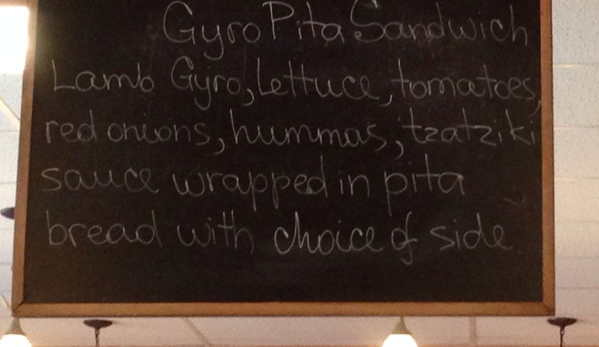 Gyro Pita Sandwich
Lamb Gyro, lettuce, tomatoes,
red onions, hummas, tzatziki
sauce wrapped in pita
bread with choice of side